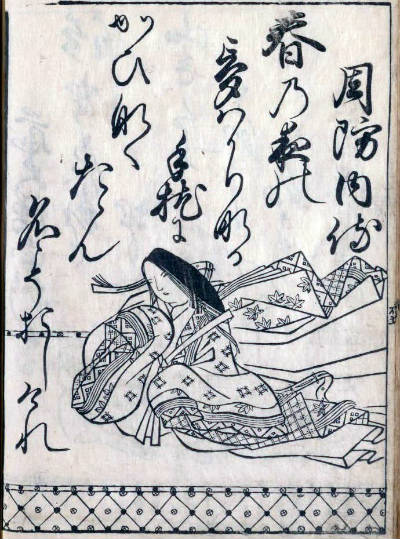 周防内侍
春乃夜の
夢はかりなる
手枕に
かひなく
たゝん
名こそおしけれ